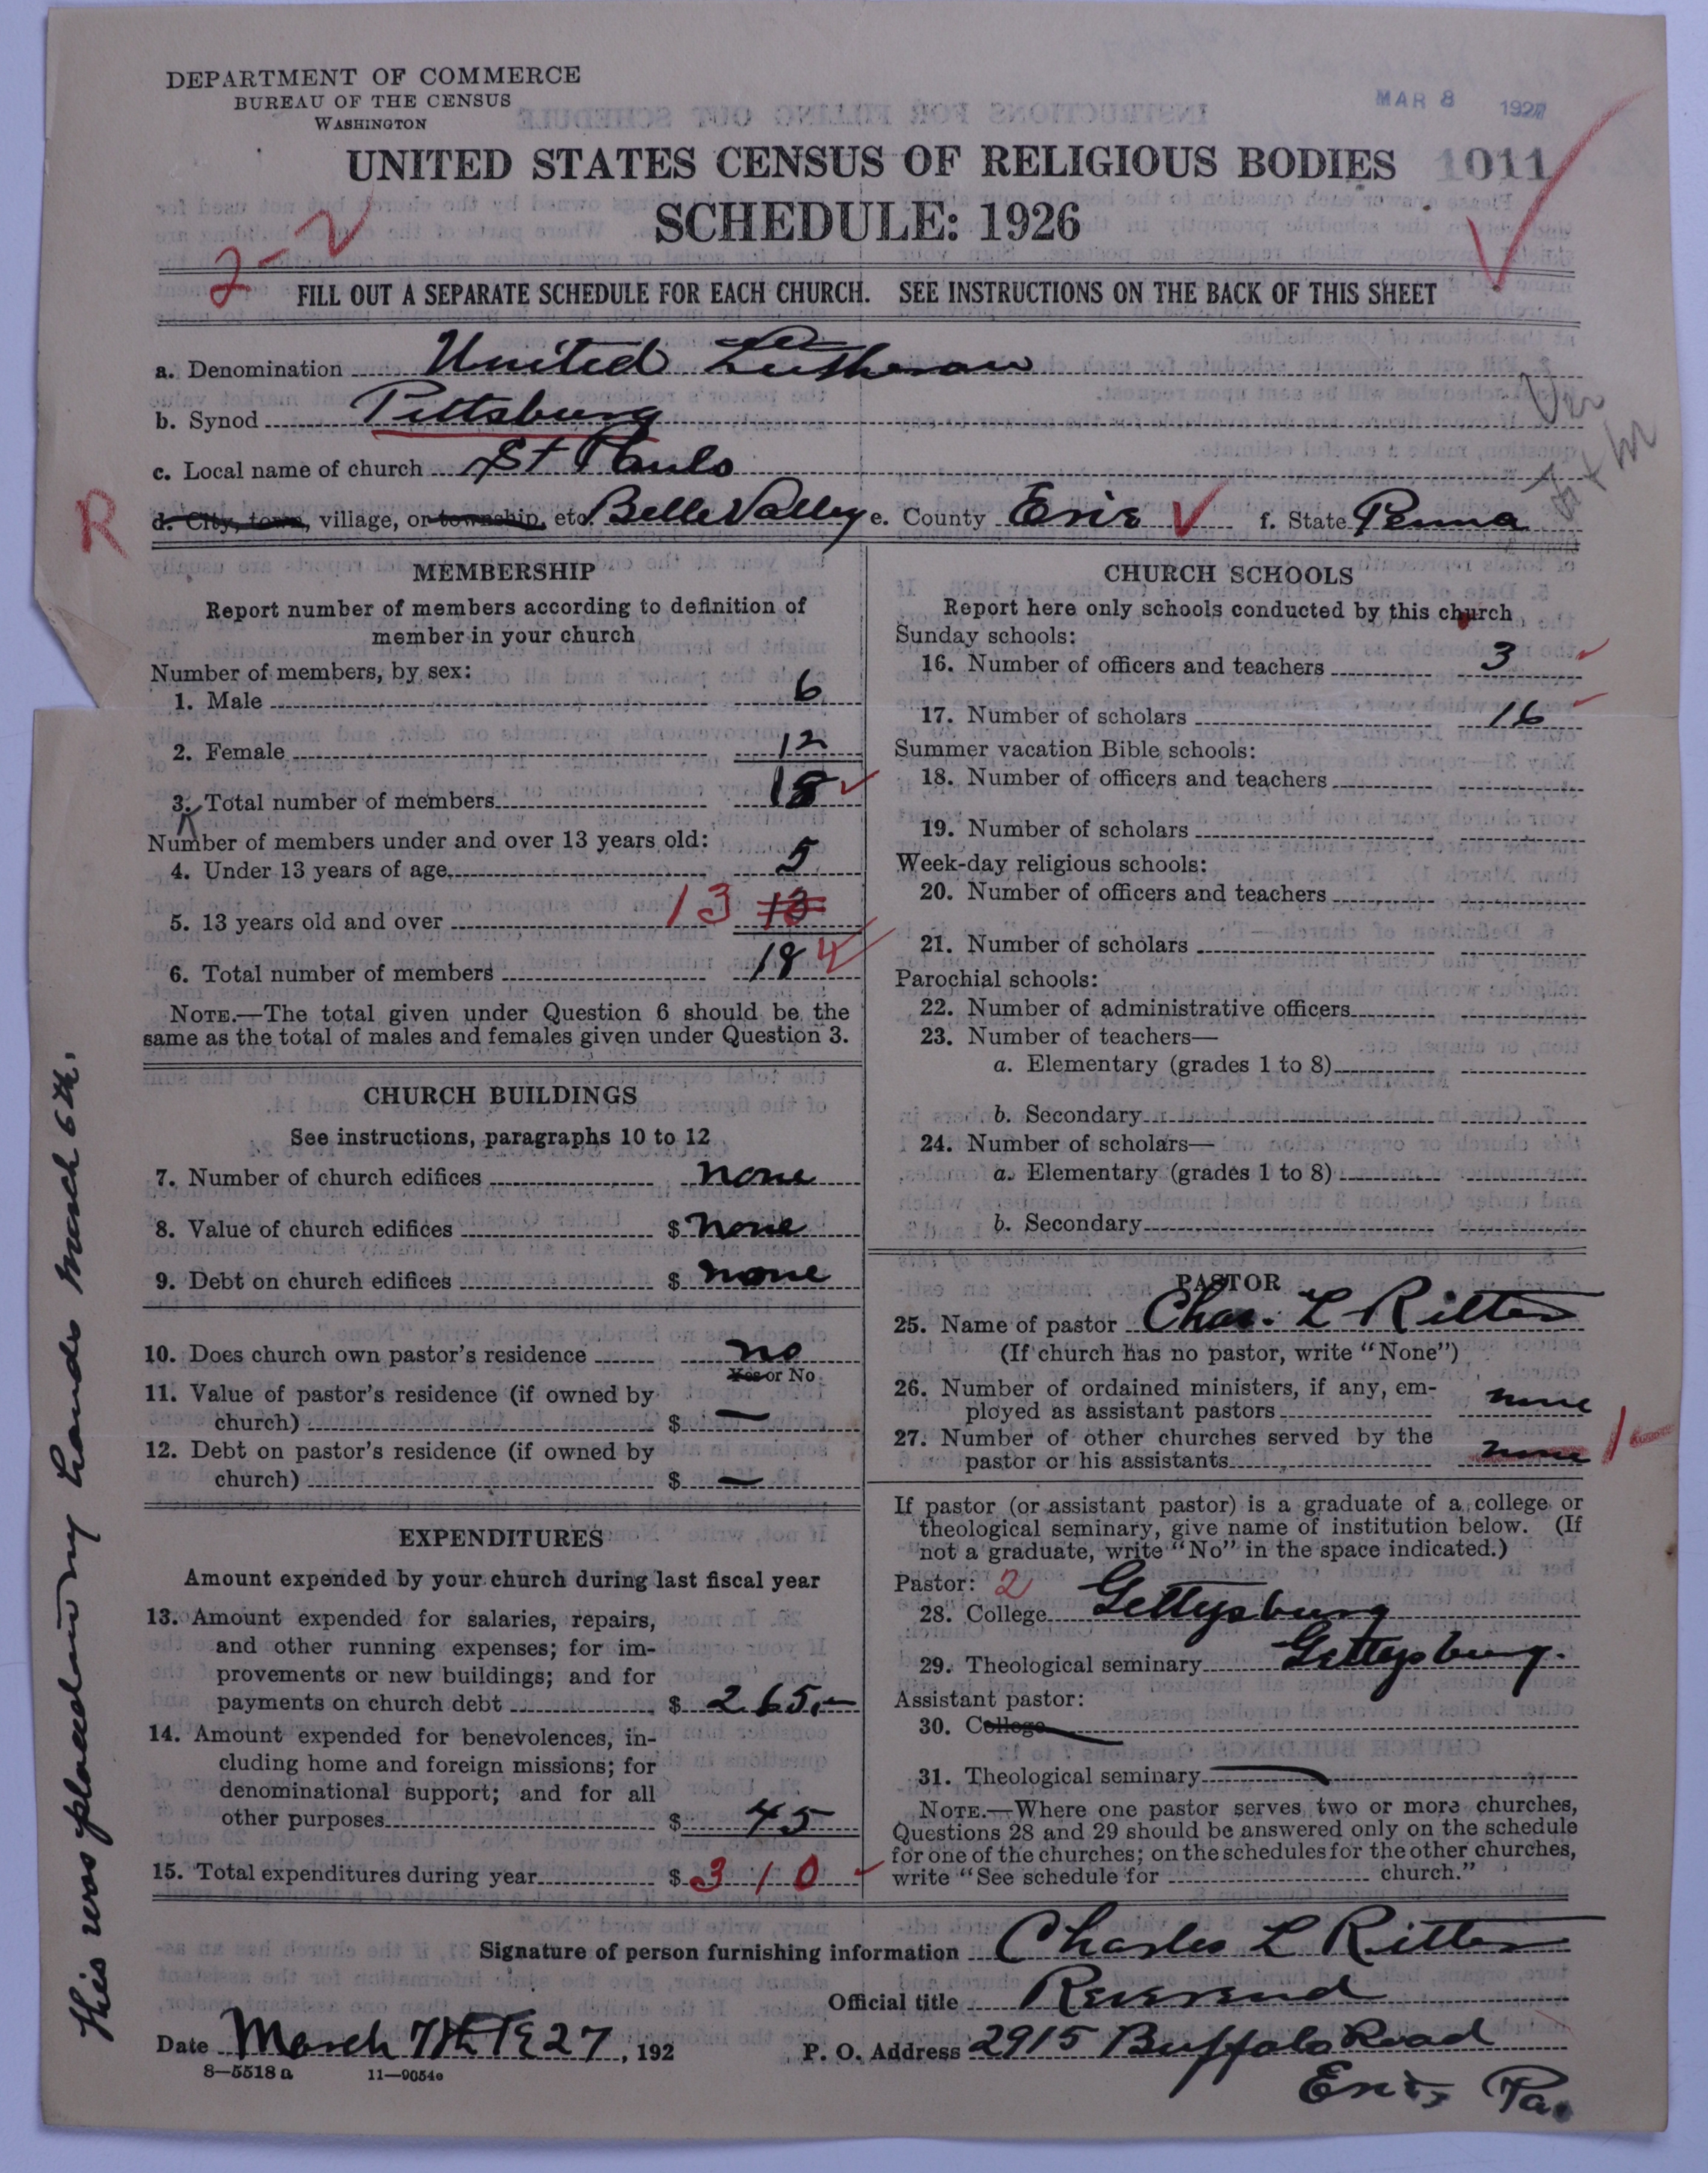 DEPARTMENT OF COMMERCE
BUREAU OF THE CENSUS
WASHINGTON
MAR 8 1927
UNITED STATES CENSUS OF RELIGIOUS BODIES 1011
SCHEDULE: 1926
2-2
FILL OUT A SEPARATE SCHEDULE FOR EACH CHURCH. SEE INSTRUCTIONS ON THE BACK OF THIS SHEET
a. Denomination United Lutheran
b. Synod Pittsburg
c. Local name of church St Pauls
R
d. City, town, village, or township, etc. Belle Valley e. County Erie f. State Penna
MEMBERSHIP
Report number of members according to definition of
member in your church
Number of members, by sex:
1. Male 6
2. Female 12
3. Total number of members 18
Number of members under and over 13 years old:
4. Under 13 years of age 5
5. 13 years old and over 13 13
6. Total number of members 18
NOTE.—The total given under Question 6 should be the
same as the total of males and females given under Question 3.
CHURCH BUILDINGS
See instructions, paragraphs 10 to 12
7. Number of church edifices none
8. Value of church edifices $ none
9. Debt on church edifices $ none
10. Does church own pastor's residence no
Yes or No
11. Value of pastor's residence (if owned by
church) $ —
12. Debt on pastor's residence (if owned by
church) $ —
EXPENDITURES
Amount expended by your church during last fiscal year
13. Amount expended for salaries, repairs,
and other running expenses; for im-
provements or new buildings; and for
payments on church debt $ 265.—
14. Amount expended for benevolences, in-
cluding home and foreign missions; for
denominational support; and for all
other purposes $ 45
15. Total expenditures during year $ 310
CHURCH SCHOOLS
Report here only schools conducted by this church
Sunday schools:
16. Number of officers and teachers 3
17. Number of scholars 16
Summer vacation Bible schools:
18. Number of officers and teachers
19. Number of scholars
Week-day religious schools:
20. Number of officers and teachers
21. Number of scholars
Parochial schools:
22. Number of administrative officers
23. Number of teachers—
a. Elementary (grades 1 to 8)
b. Secondary
24. Number of scholars—
a. Elementary (grades 1 to 8)
b. Secondary
PASTOR
25. Name of pastor Chas. L Ritter
(If church has no pastor, write "None")
26. Number of ordained ministers, if any, em-
ployed as assistant pastors none
27. Number of other churches served by the
pastor or his assistants none 1
If pastor (or assistant pastor) is a graduate of a college or
theological seminary, give name of institution below. (If
not a graduate, write "No" in the space indicated.)
Pastor: 2
28. College Gettysburg
29. Theological seminary Gettysburg.
Assistant pastor:
30. College
31. Theological seminary
NOTE.—Where one pastor serves two or more churches,
Questions 28 and 29 should be answered only on the schedule
for one of the churches; on the schedules for the other churches,
write "See schedule for church."
Signature of person furnishing information Charles L Ritter
Official title Reverend
Date March 7th 1927, 192
P. O. Address 2915 Buffalo Road
Erie, Pa.
8—5518a 11—9054e
This was placed in my hands March 6th.